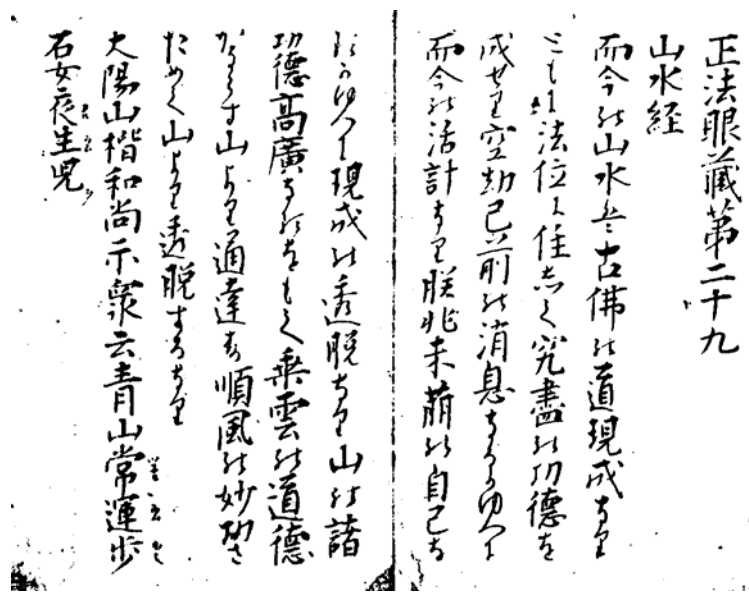 正法眼藏第二十九
山水経
而今の山水は古佛の道現成なり
ともに法位に住して究盡の功德を
成せり空劫已前の消息なるかゆへに
而今の活計なり朕兆未萠の自己な
るかゆへに現成の透脱なり山の諸
功德高廣なるをもて乗雲の道德
かならす山より通達す順風の妙功さ
ためて山より透脱するなり
大陽山楷和尚示衆云青山常運歩
石女夜生児